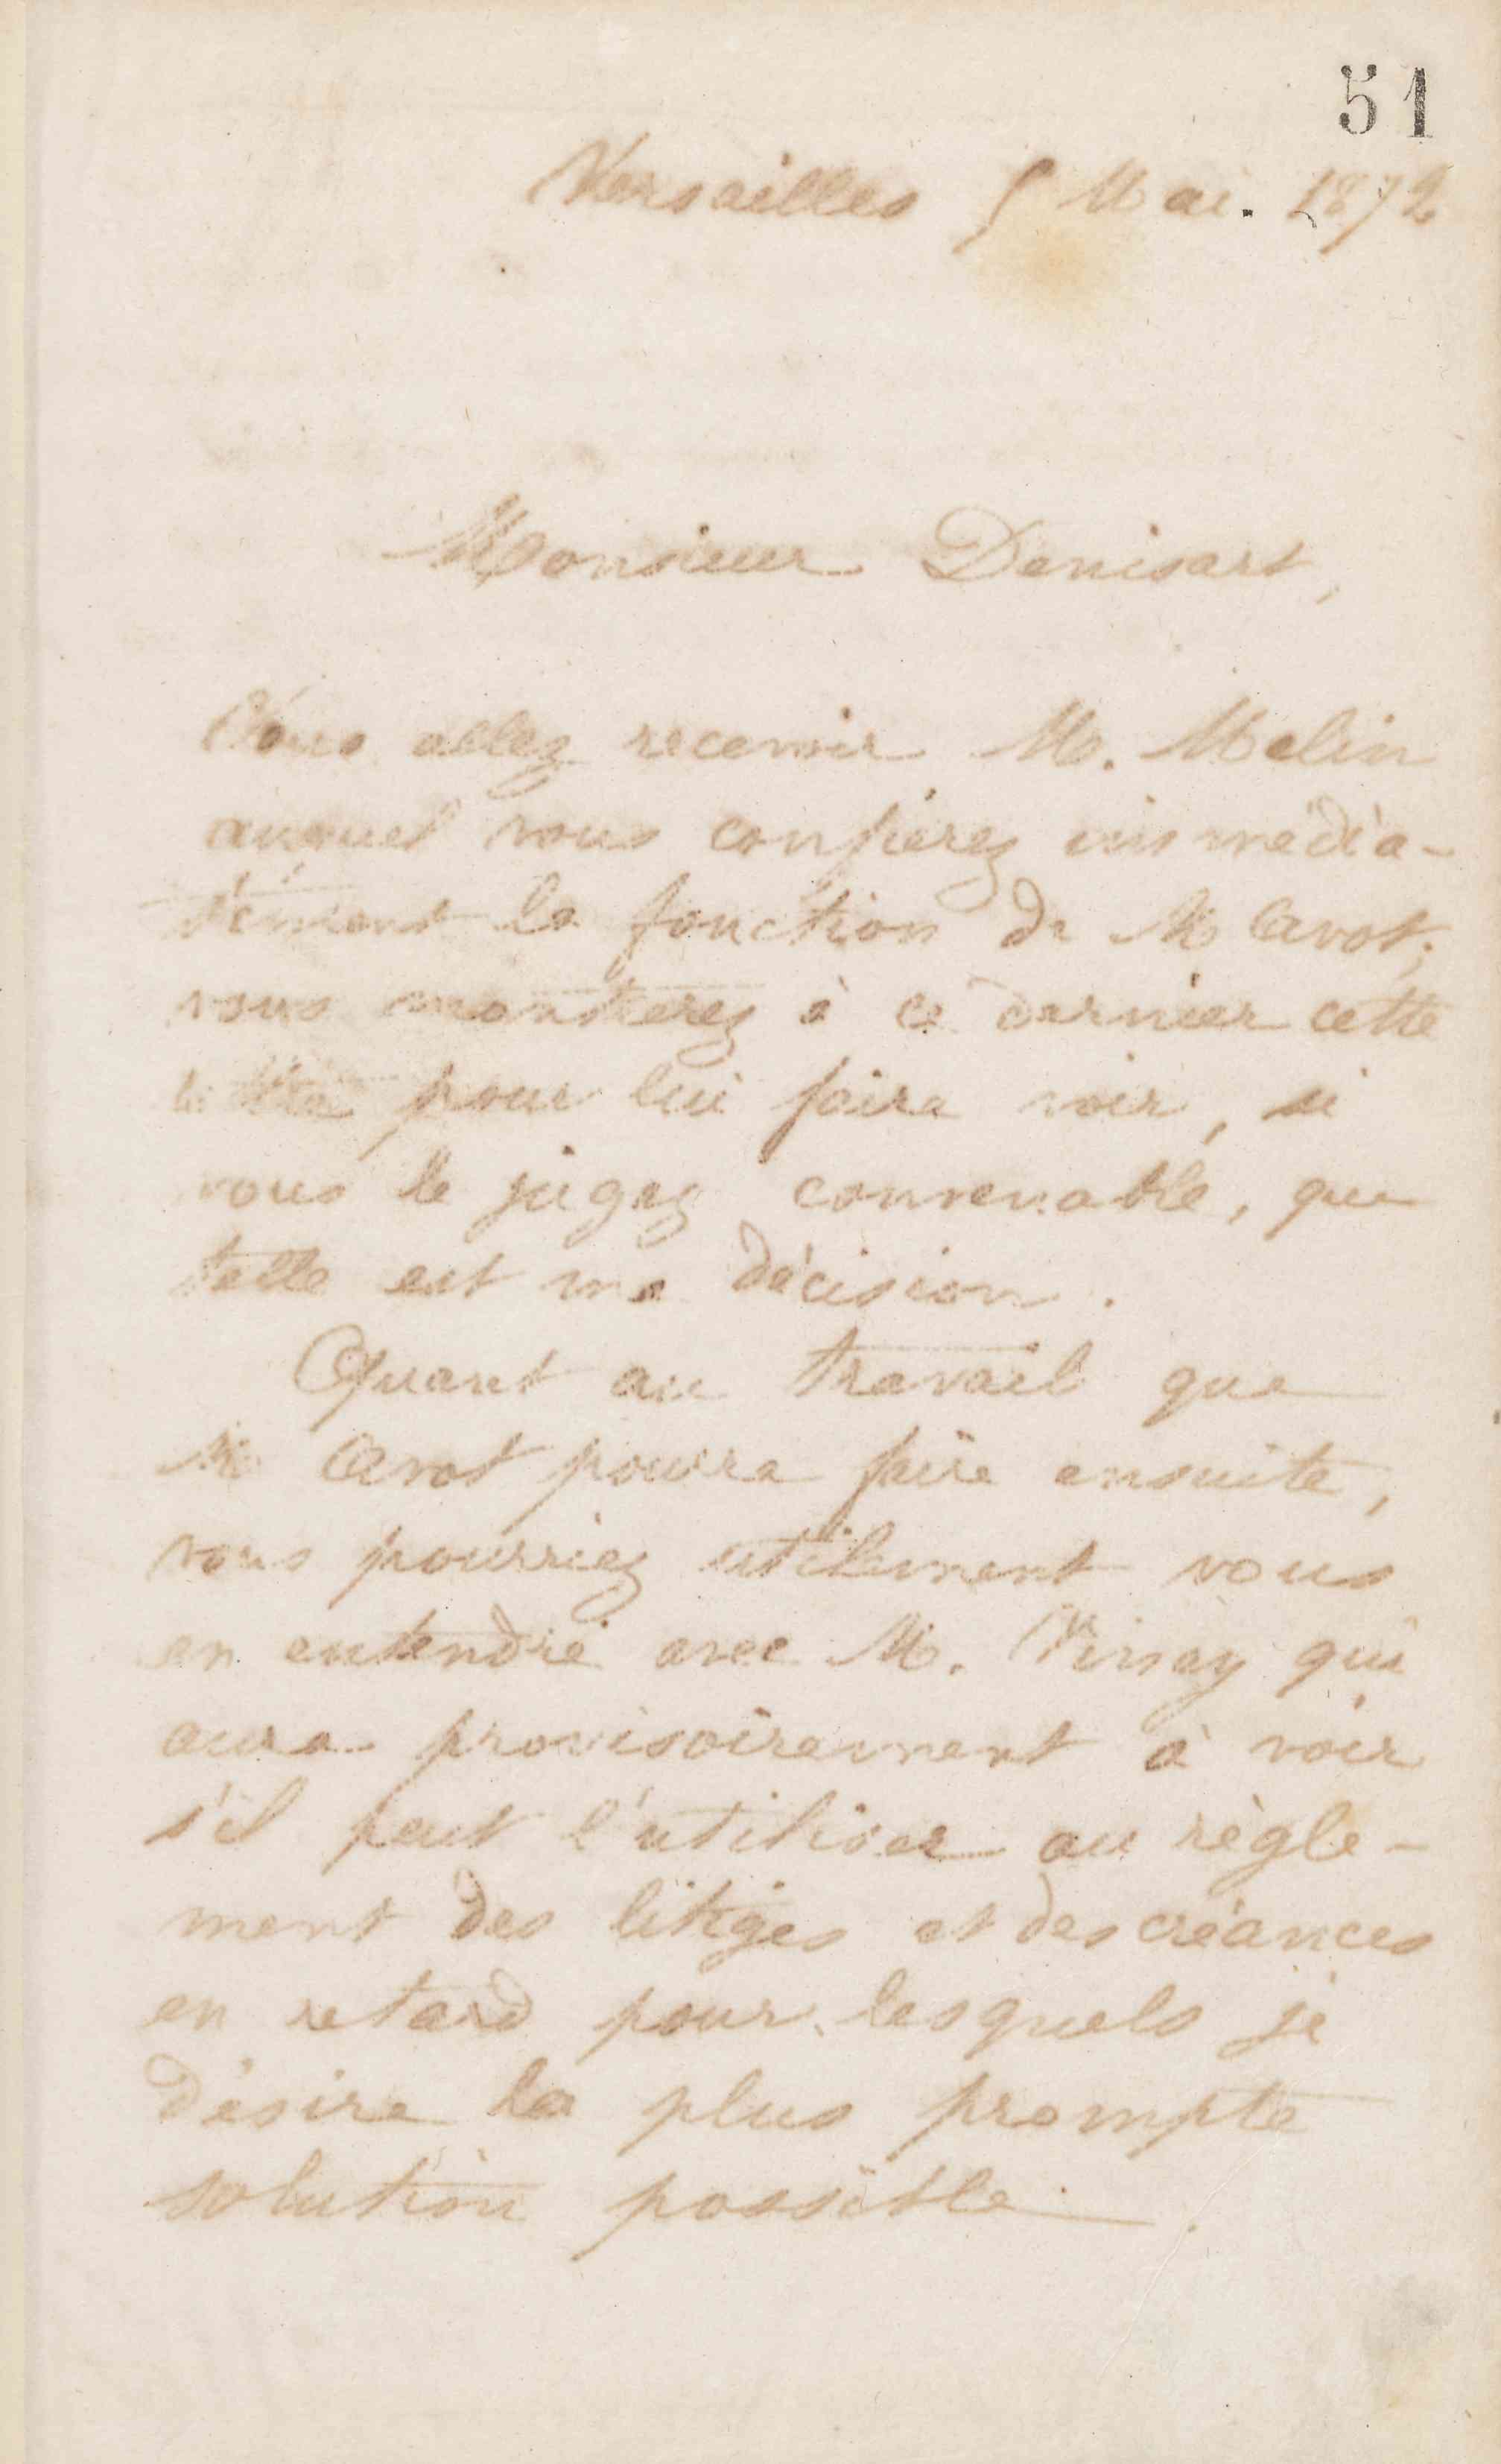 51
Versailles 5 Mai. 1872
Monsieur Denisart,
Vous allez recevoir M. Melin
auquel vous confierez immédia-
tement la fonction de M Avot;
vous montrerez à ce dernier cette
lettre, pour lui faire voir, si
vous le jugez convenable, que
telle est ma décision.
Quant au travail que
M Avot pourra faire ensuite,
vous pourriez utilement vous
en entendre avec M. Vinay qui
aura provisoirement à voir
s'il peut l'utiliser au règle-
ment des litiges et des créances
en retard pour lesquels je
désire la plus prompte
solution possible.